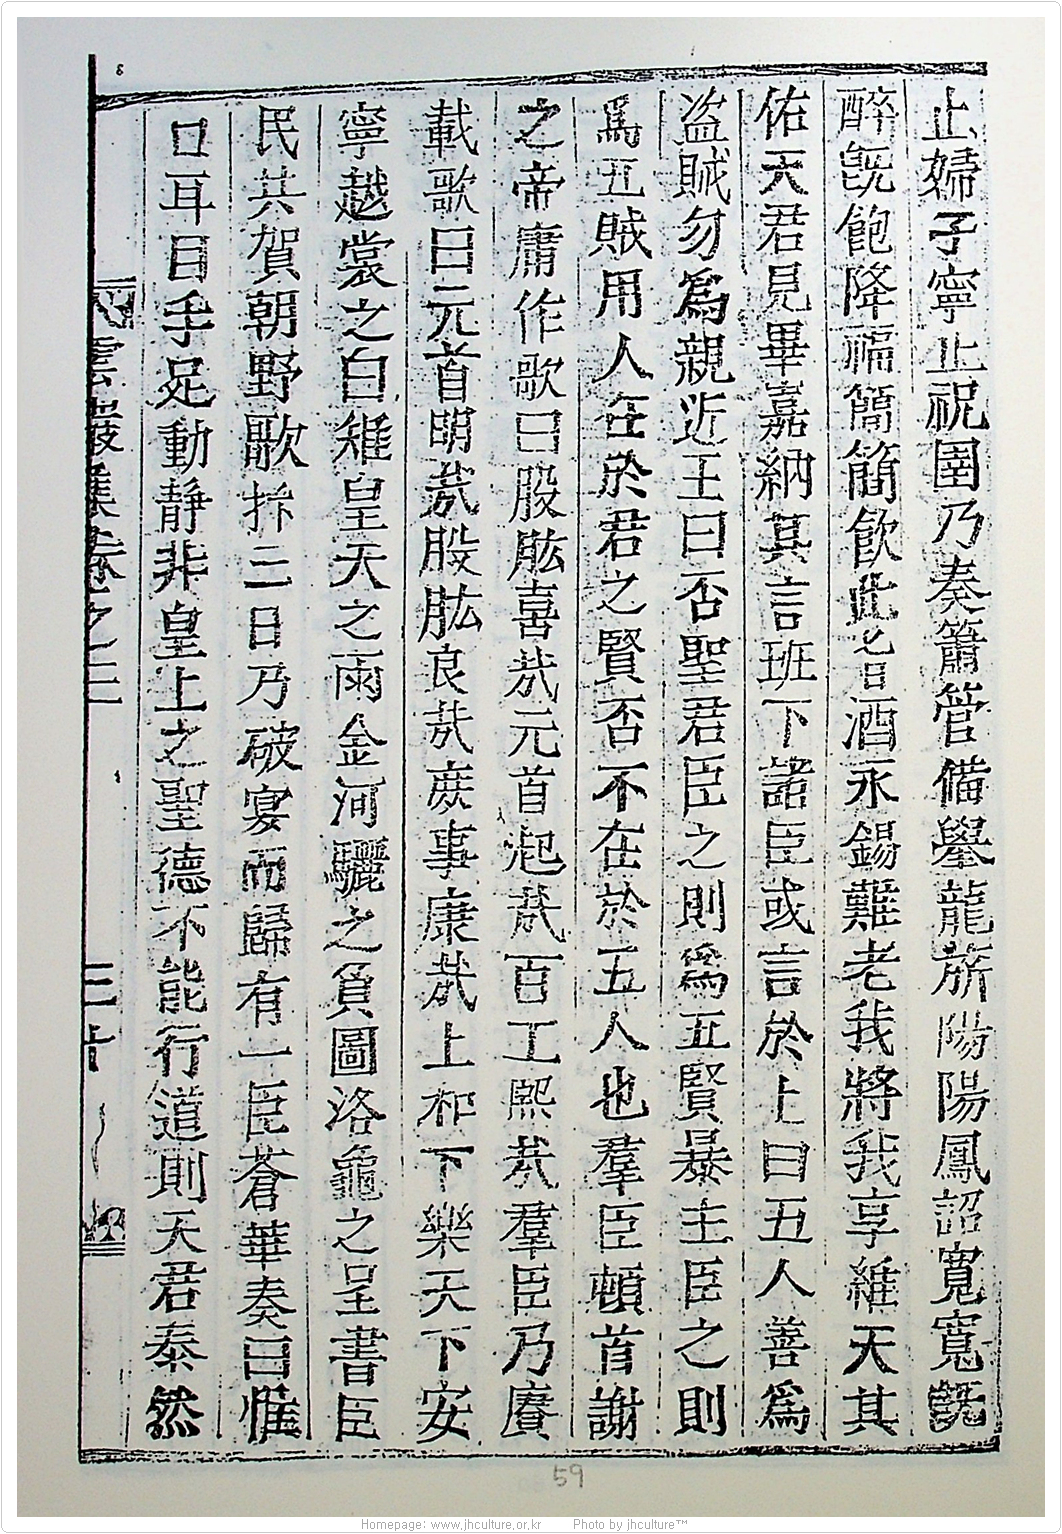 止婦子寧止祝圉乃奏簫管備擧龍旂陽陽鳳詔寬寬旣
醉旣飽降福簡簡飮此旨酒永錫難老我將我享維天其
佑天君見畢嘉納其言班下諸臣或言於上曰五人善爲
盜賊勿爲親近王曰否聖君臣之則爲五賢暴主臣之則
爲五賊用人在於君之賢否不在於五人也羣臣頓首謝
之帝庸作歌曰股肱喜哉元首起哉百工熙哉羣臣乃賡
載歌曰元首明哉股肱良哉庶事康哉上和下樂天下安
寧越裳之白雉皇天之雨金河驪之負圖洛龜之呈書臣
民共賀朝野歌抃三日乃破宴而歸有一臣蒼華奏曰惟
口耳目手足動靜非皇上之聖德不能行道則天君泰然
雲巖集卷之二
三十
59
Homepage: www.jhculture.or.kr Photo by jhculture™